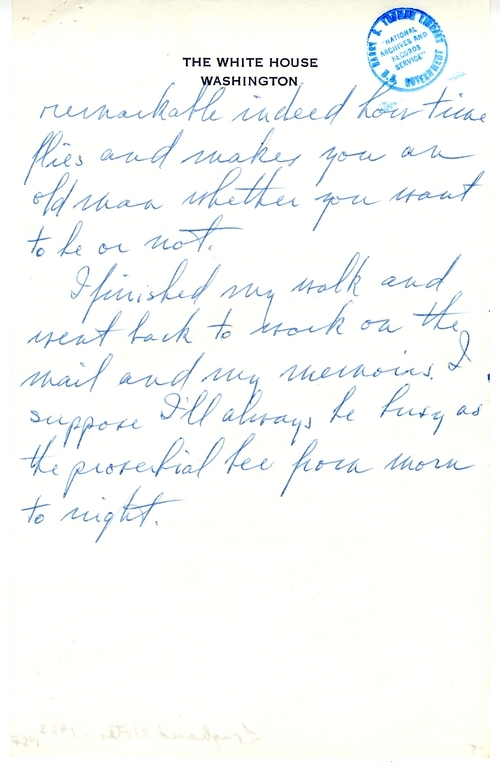 HARRY S. TRUMAN LIBRARY
"NATIONAL
ARCHIVES AND
RECORDS
SERVICE"
U.S. GOVERNMENT
THE WHITE HOUSE
WASHINGTON
remarkable indeed how time
flies and makes you an
old man whether you want
to be or not.
I finished my walk and
went back to work on the
mail and my memoirs. I
suppose I'll always be busy as
the proverbial bee from morn
to night.